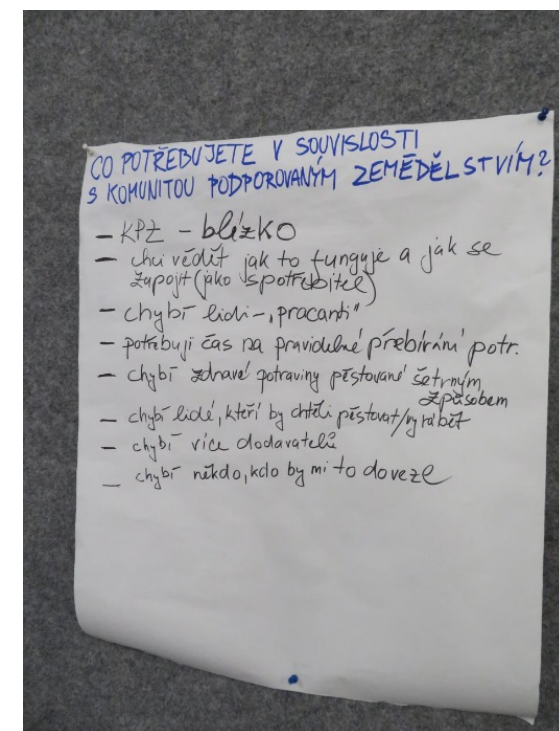 CO POTŘEBUJETE V SOUVISLOSTI
S KOMUNITOU PODPOROVANÝM ZEMĚDĚLSTVÍM?
- KPZ - blízko
- chci vědět jak to funguje a jak se
zapojit (jako spotřebitel)
- chybí lidi - „pracanti"
- potřebuji čas na pravidelné přebírání potr.
- chybí zdravé potraviny pěstované šetrným
způsobem
- chybí lidé, kteří by chtěli pěstovat/vyrábět
- chybí více dodavatelů
- chybí někdo, kdo by mi to doveze